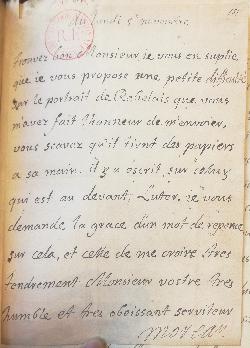 du lundi 5e novembre
trouvez bon Monsieur ie vous en suplie
que ie vous propose une petite difficulté
sur le portrait de Rabelais que vous
m'avez fait l'honneur de m'envoier,
vous scavez qu'il tient des papiers
a sa main. il y a escrit sur celuy
qui est au devant, Luter. ie vous
demande la grace d'un mot de reponse
sur cela, et celle de me croire tres
tendrement Monsieur vostre tres
humble et tres obeissant serviteur